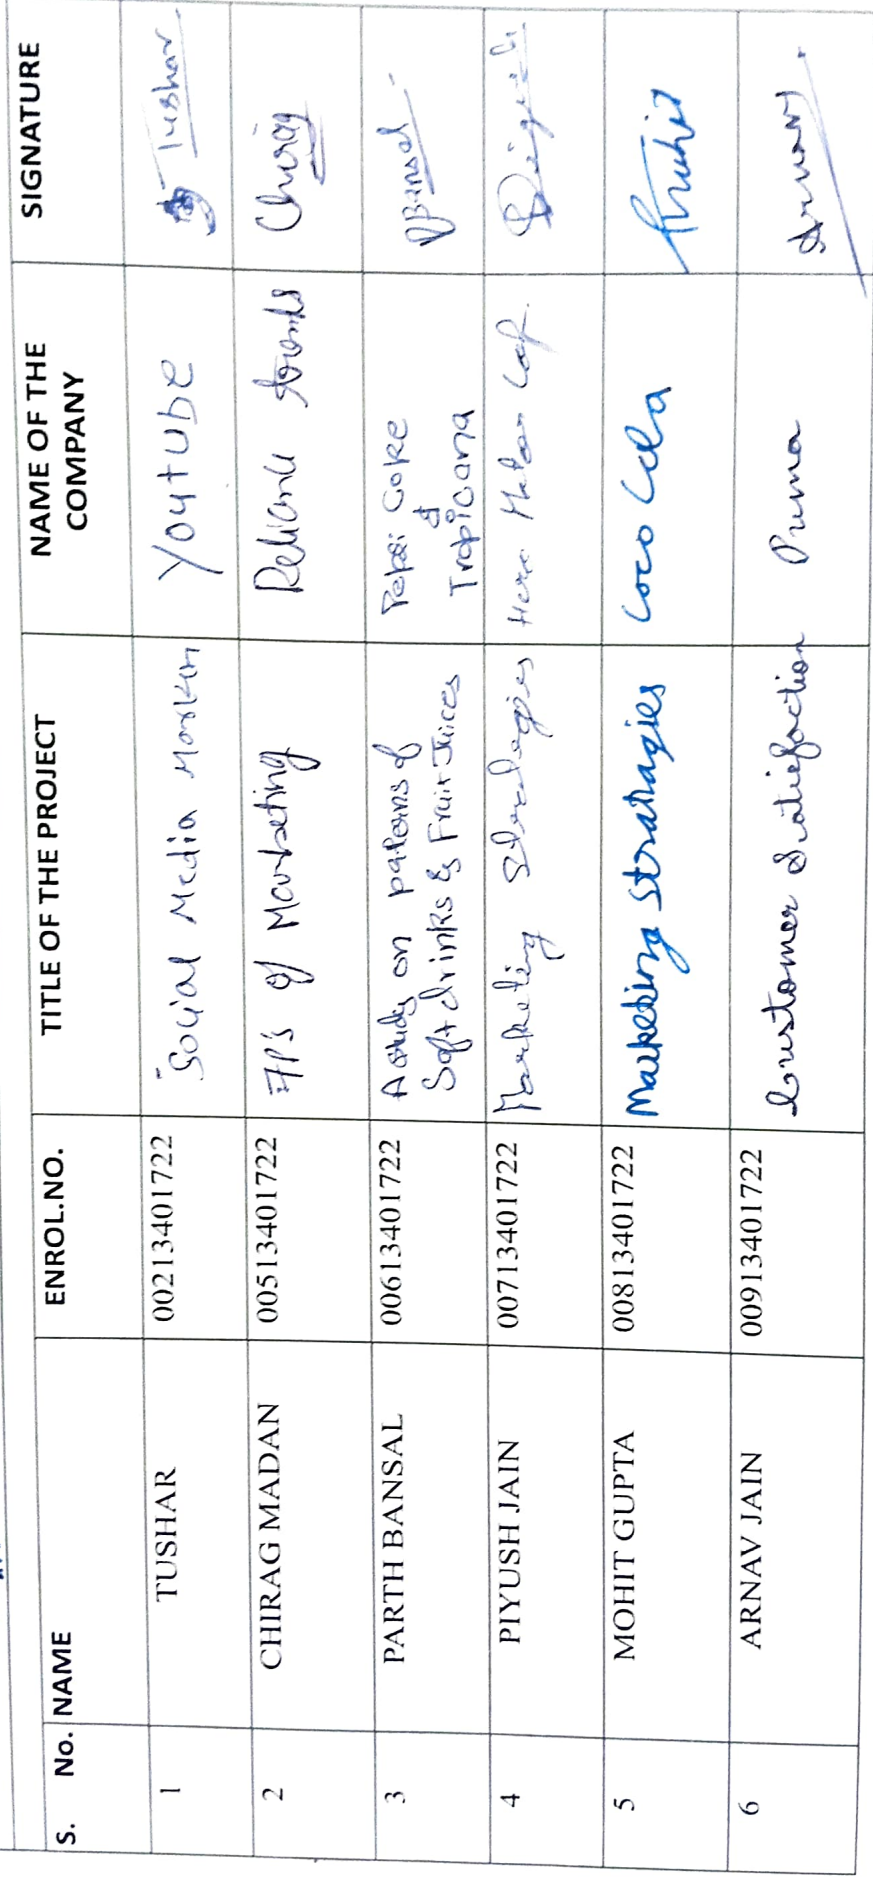 S. No. NAME ENROL.NO. TITLE OF THE PROJECT NAME OF THE COMPANY SIGNATURE
1 TUSHAR 00213401722 Social Media Markin Youtube Tushar
2 CHIRAG MADAN 00513401722 7P's of Marketing Reliance trends Chirag
3 PARTH BANSAL 00613401722 A study on paterns of Pepsi Coke & PBansal
Soft drinks & Fruit Juices Tropicana
4 PIYUSH JAIN 00713401722 Marketing Strategies
5 MOHIT GUPTA 00813401722 Marketing Stratagies Coco Cola Mohit
6 ARNAV JAIN 00913401722 Customer Satisfaction Puma Arnav